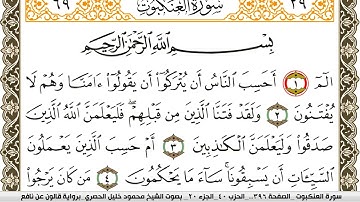 ٦٩ سورة العنكبوت ٢٩
بِسْمِ اللَّهِ الرَّحْمَٰنِ الرَّحِيمِ
الٓمٓ ١ أَحَسِبَ النَّاسُ أَن يُتْرَكُوا أَن يَقُولُوا ءَامَنَّا وَهُمْ لَا
يُفْتَنُونَ ٢ وَلَقَدْ فَتَنَّا الَّذِينَ مِن قَبْلِهِمْ فَلَيَعْلَمَنَّ اللَّهُ الَّذِينَ
صَدَقُوا وَلَيَعْلَمَنَّ الْكَٰذِبِينَ ٣ أَمْ حَسِبَ الَّذِينَ يَعْمَلُونَ
السَّيِّـَٔاتِ أَن يَسْبِقُونَا سَآءَ مَا يَحْكُمُونَ ٤ مَن كَانَ يَرْجُوا
سورة العنكبوت _الصفحة ٣٩٦_ الحزب ٤٠_الجزء ٢٠_ بصوت الشيخ محمود خليل الحصري_برواية قالون عن نافع